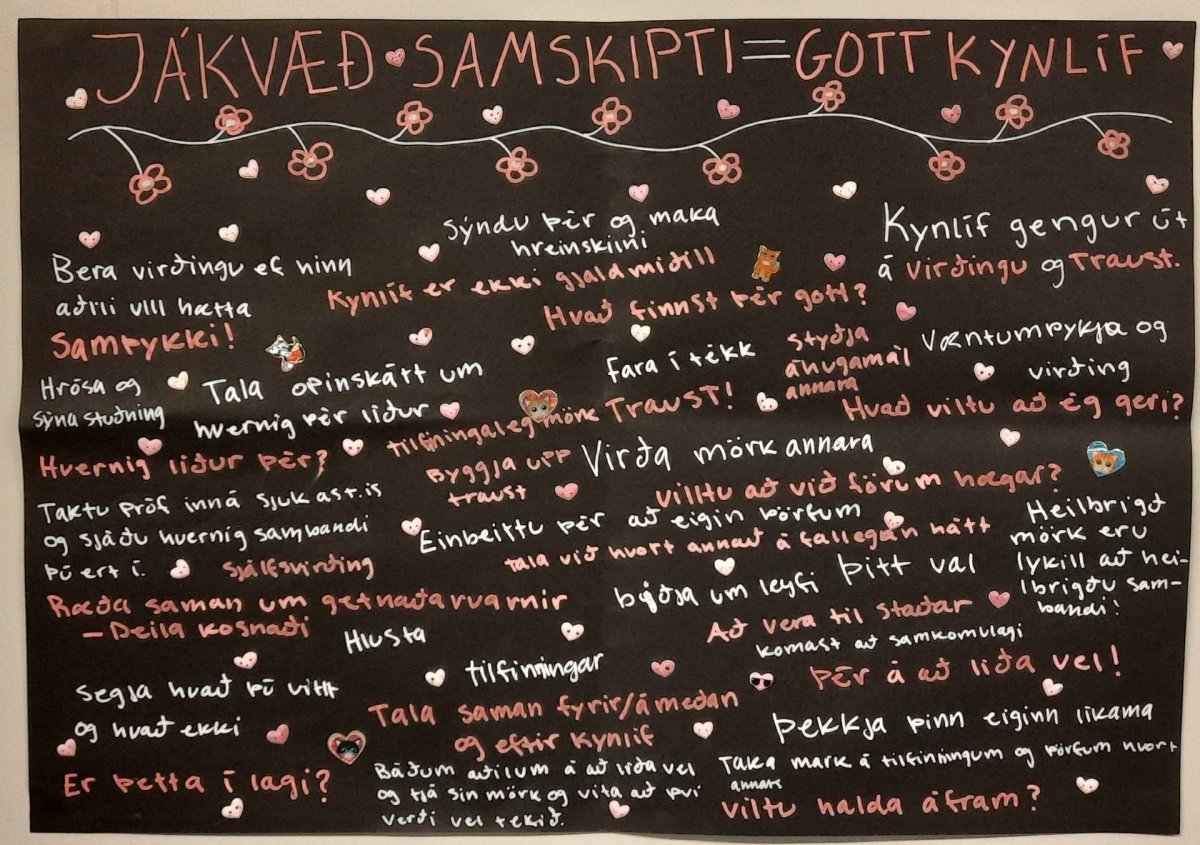 JÁKVÆÐ SAMSKIPTI = GOTT KYNLÍF
Sýndu þér og maka
hreinskilni
Kynlíf gengur út
á virðingu og Traust.
Bera virðingu ef hinn
aðili vill hætta
Kynlíf er ekki gjaldmiðill
Hvað finnst þér gott?
Samþykki!
Hrósa og
sýna stuðning
Tala opinskátt um
hvernig þér líður
Fara í tékk
Styðja
áhugamál
annara
Væntumþykja og
virðing
tilfiningaleg mörk
Traust!
Hvað viltu að ég geri?
Hvernig líður þér?
Byggja upp
traust
Virða mörk annara
Viltu að við förum hægar?
Taktu próf inná sjukast.is
og sjáðu hvernig sambandi
þú ert í.
Einbeittu þér að eigin þörfum
tala við hvort annað á fallegan hátt
Heilbrigð
mörk eru
lykill að hei-
lbrigðu sam-
bandi!
Sjálfsvirðing
Ræða saman um getnaðarvarnir
- Deila kosnaði
biðja um leyfi
Þitt val
Að vera til staðar
komast að samkomulagi
Hlusta
tilfinningar
Þér á að líða vel!
Segja hvað þú villt
og hvað ekki
Tala saman fyrir/ámeðan
og eftir kynlíf
Þekkja þinn eiginn líkama
Er þetta í lagi?
Báðum aðilum á að líða vel
og tjá sin mörk og vita að því
verði vel tekið.
Taka mark á tilfinningum og þörfum hvort
annars
Viltu halda áfram?